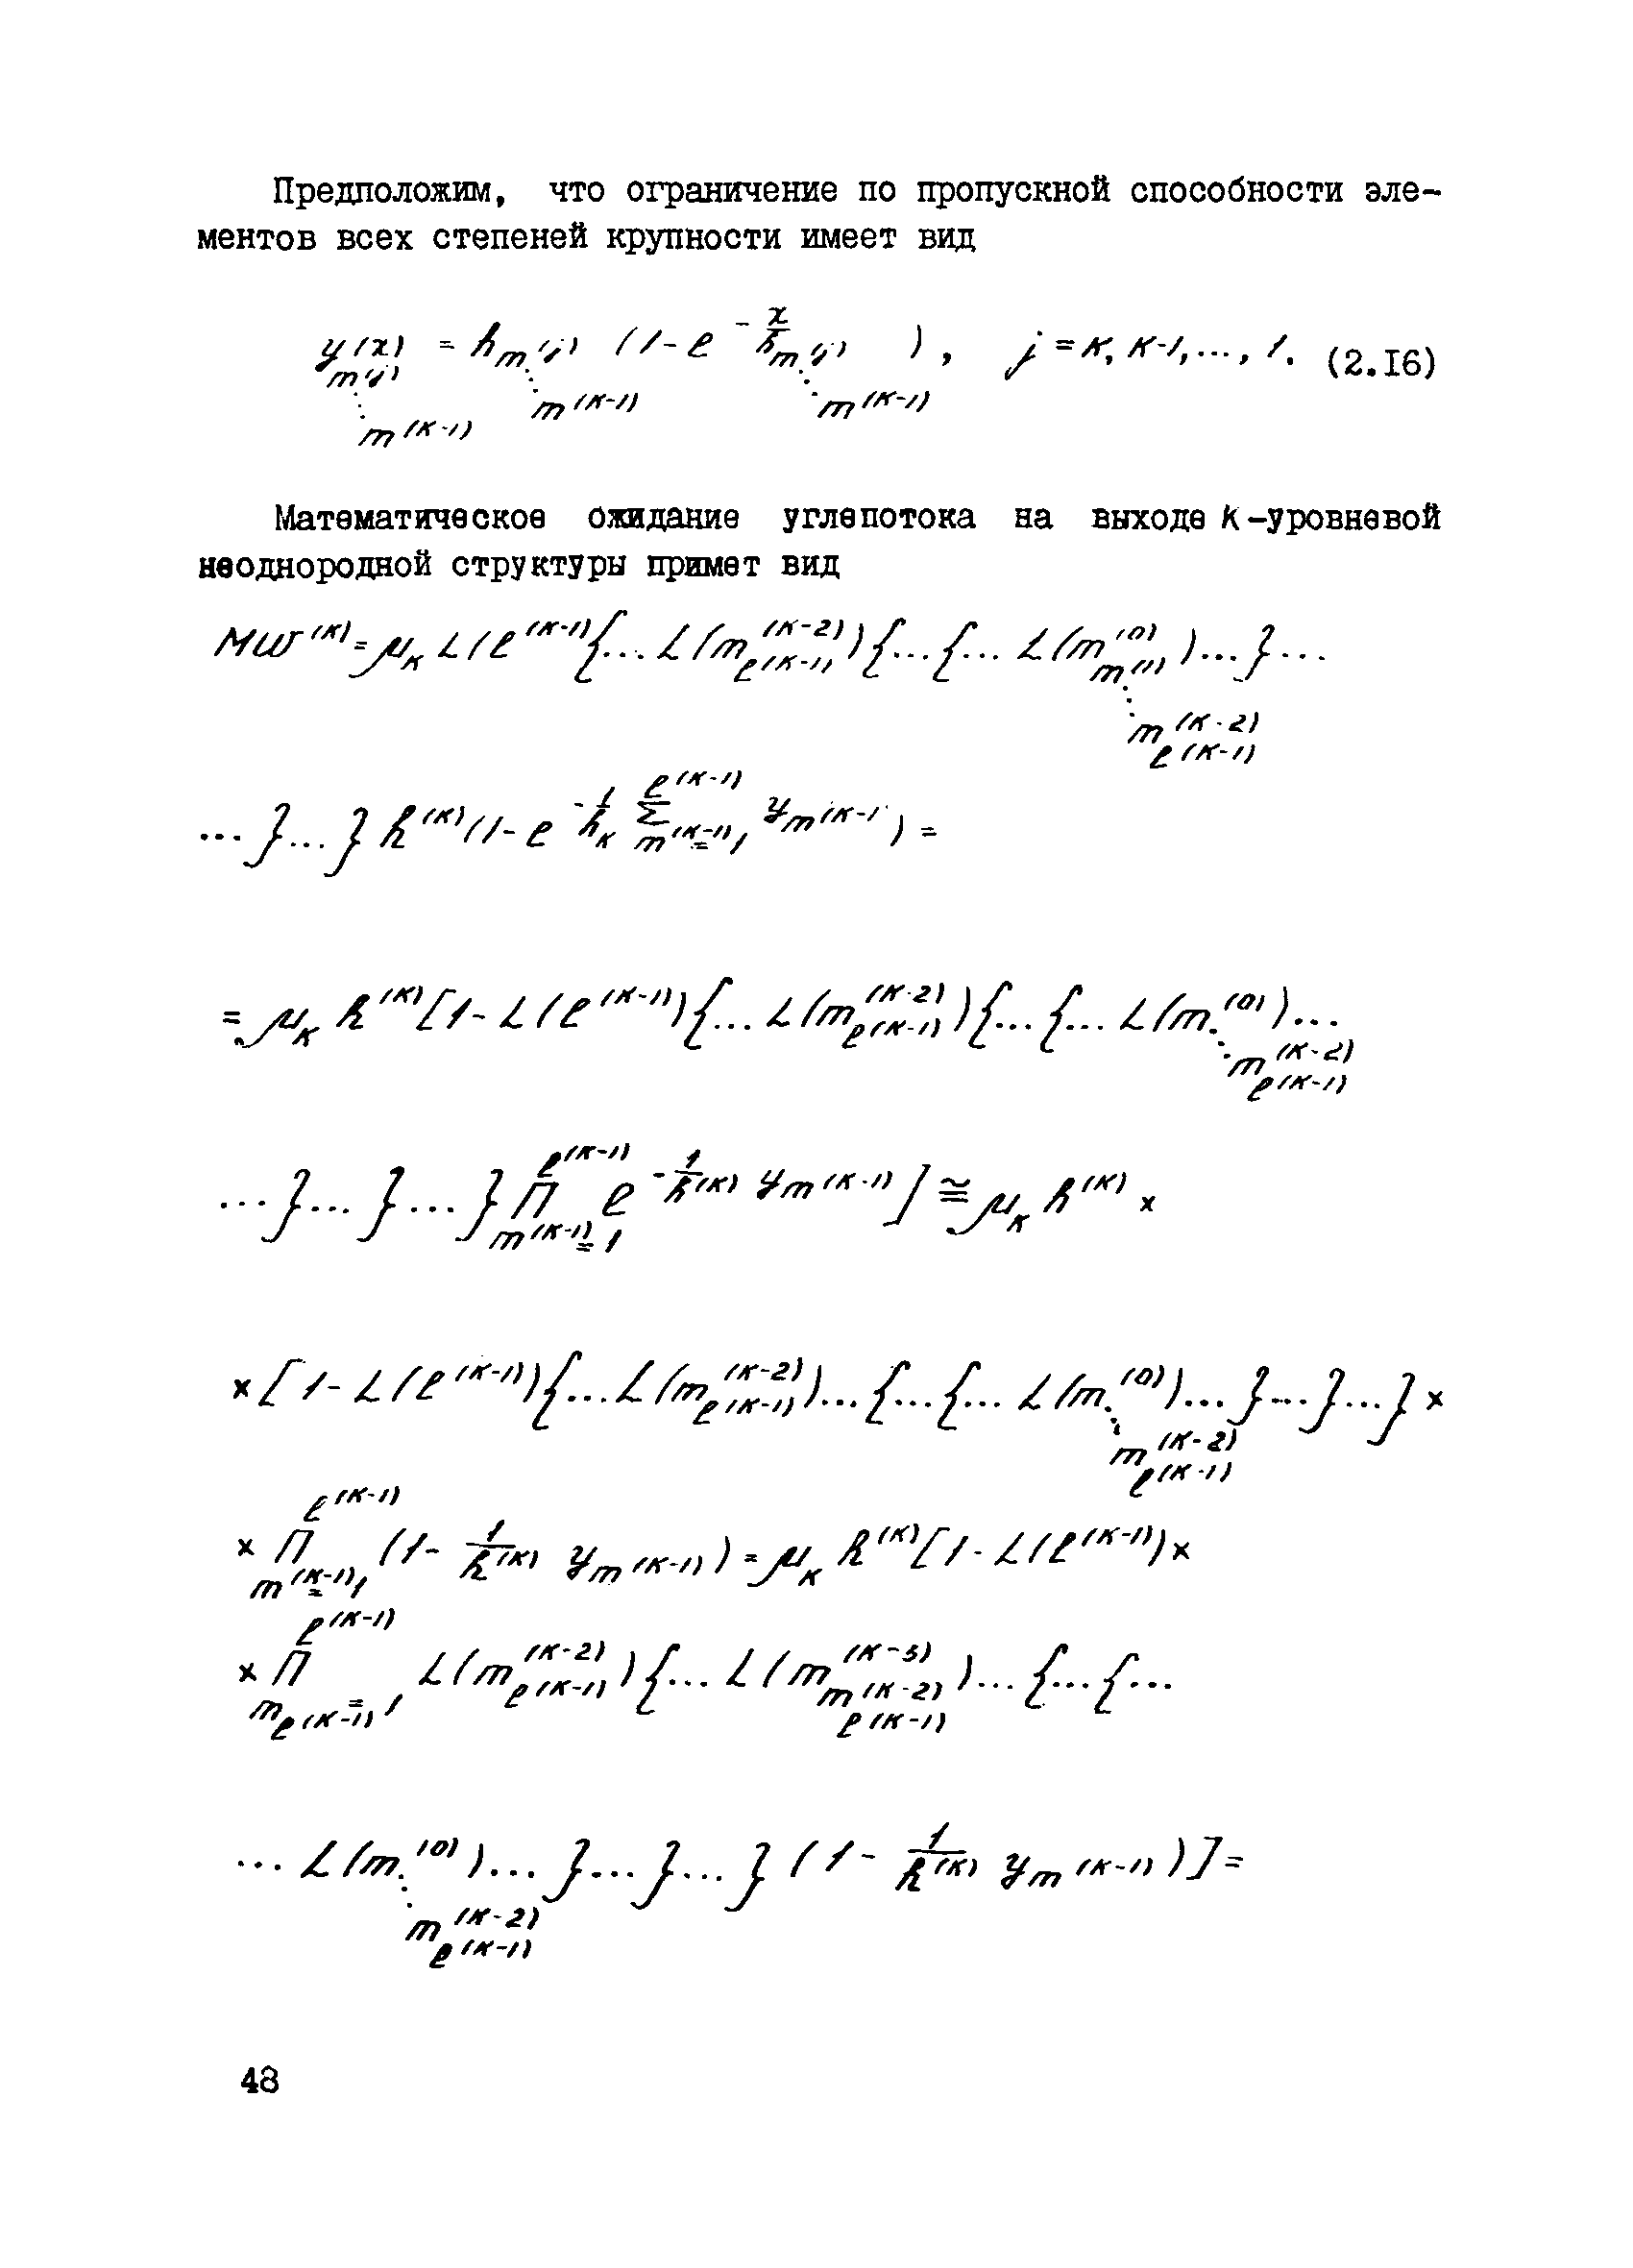 Предположим, что ограничение по пропускной способности эле-
ментов всех степеней крупности имеет вид
y_{m^{(j)}_{⋱ m^{(K-1)}}}(x) = h_{m^{(j)}_{⋱ m^{(K-1)}}} (1-e^{-x/h_{m^{(j)}_{⋱ m^{(K-1)}}}}), j=K, K-1,..., 1. (2.16)
Математическое ожидание углепотока на выходе K-уровневой
неоднородной структуры примет вид
MW^{(K)}=μ_K L(ℓ^{(K-1)}{...L(m^{(K-2)}_{ℓ^{(K-1)}}){...{...L(m^{(0)}_{m^{(1)}_{⋱ m^{(K-2)}_{ℓ^{(K-1)}}}})...}...
...}...}h^{(K)}(1-e^{-\frac{1}{h_K} Σ_{m^{(K-1)}=1}^{ℓ^{(K-1)}} y_{m^{(K-1)}}})=
=μ_K h^{(K)}[1-L(ℓ^{(K-1)}){...L(m^{(K-2)}_{ℓ^{(K-1)}}){...{...L(m^{(0)}_{⋱ m^{(K-2)}_{ℓ^{(K-1)}}})...
...}...}...}Π_{m^{(K-1)}=1}^{ℓ^{(K-1)}} e^{-\frac{1}{h^{(K)}} y_{m^{(K-1)}}}]≅μ_K h^{(K)}×
×[1-L(ℓ^{(K-1)}){...L(m^{(K-2)}_{ℓ^{(K-1)}})...{...{...L(m^{(0)}_{⋱ m^{(K-2)}_{ℓ^{(K-1)}}})...}...}...}×
×Π_{m^{(K-1)}=1}^{ℓ^{(K-1)}} (1-\frac{1}{h^{(K)}} y_{m^{(K-1)}})=μ_K h^{(K)}[1-L(ℓ^{(K-1)})×
×Π_{m_{ℓ^{(K-1)}}=1}^{ℓ^{(K-1)}} L(m^{(K-2)}_{ℓ^{(K-1)}}){...L(m^{(K-3)}_{m^{(K-2)}_{ℓ^{(K-1)}}})...{...{...
...L(m^{(0)}_{⋱ m^{(K-2)}_{ℓ^{(K-1)}}})...}...}...}(1-\frac{1}{h^{(K)}} y_{m^{(K-1)}})]=
48